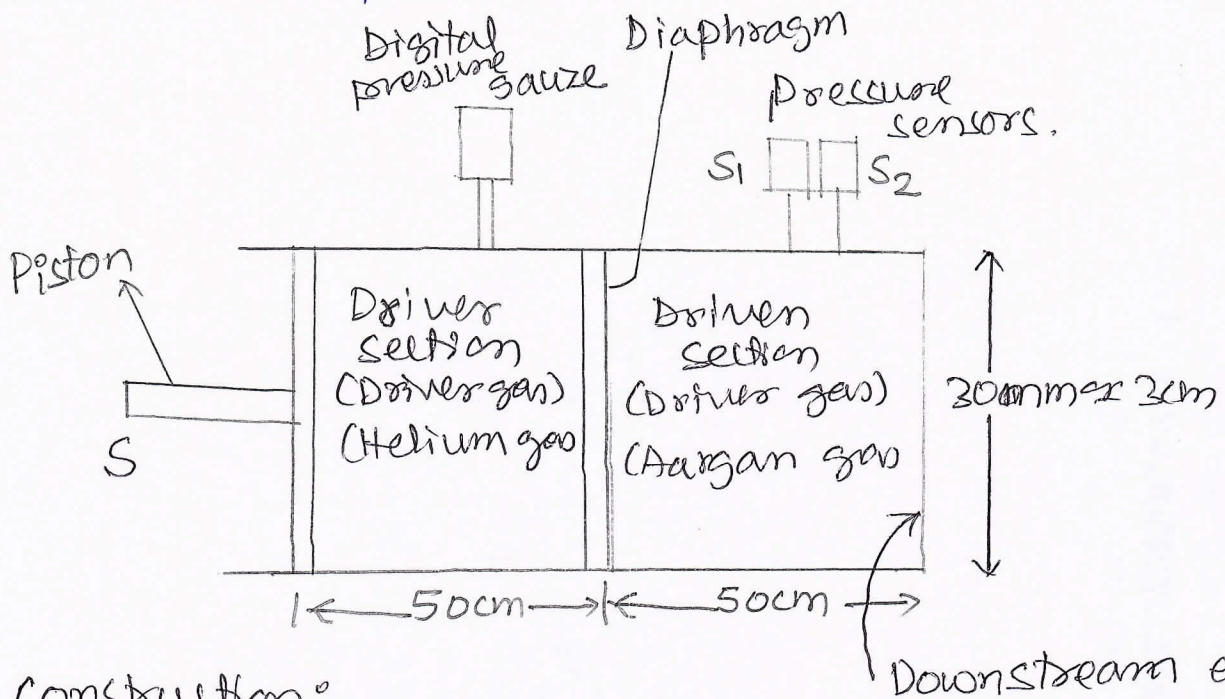 Digital
pressure
gauze
Diaphragm
Pressure
sensors.
S1
S2
Piston
S
Driver
section
(Driver gas)
(Helium gas
Driven
section
(Driver gas)
(Aargan gas
3cm
50cm
50cm
Downstream e
Construction: